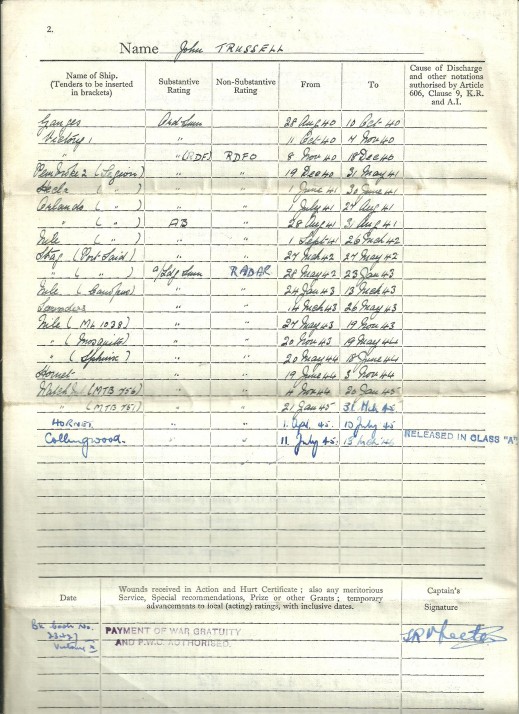 2.
Name John TRUSSELL
Name of Ship. (Tenders to be inserted in brackets) Substantive Rating Non-Substantive Rating From To Cause of Discharge and other notations authorised by Article 606, Clause 9, K.R. and A.I.
Ganges Ord Smn 28 Aug 40 10 Oct 40
Victory 1 " 11 Oct 40 7 Nov 40
" " (RDF) RDFO 8 Nov 40 18 Dec 40
Pembroke 2 (Legion) " " 19 Dec 40 31 May 41
Hecla ( " ) " " 1 June 41 30 June 41
Orlando ( " ) " " 1 July 41 27 Aug 41
" ( " ) AB " 28 Aug 41 31 Aug 41
Nile ( " ) " " 1 Sept 41 26 Mch 42
Stag (Port Said) " " 27 Mch 42 27 May 42
" ( " ) a/Ldg Smn RADAR 28 May 42 23 Jan 43
Nile ( ) " " 24 Jan 43 13 Mch 43
" " 14 Mch 43 26 May 43
Nile (ML 1038) " " 27 May 43 19 Nov 43
" (Mosquito) " " 20 Nov 43 19 May 44
" (Sphinx) " " 20 May 44 18 June 44
Hornet " " 19 June 44 3 Nov 44
(MTB 756) " " 4 Nov 44 20 Jan 45
" (MTB 751) " " 21 Jan 45 31 Mch 45
HORNET " " 1 Apl 45 10 July 45
Collingwood. " " 11 July 45 RELEASED IN CLASS "A"
Date Wounds received in Action and Hurt Certificate; also any meritorious Service, Special recommendations, Prize or other Grants; temporary advancements to local (acting) ratings, with inclusive dates. Captain's Signature
PAYMENT OF WAR GRATUITY
AND P.W.C. AUTHORISED.